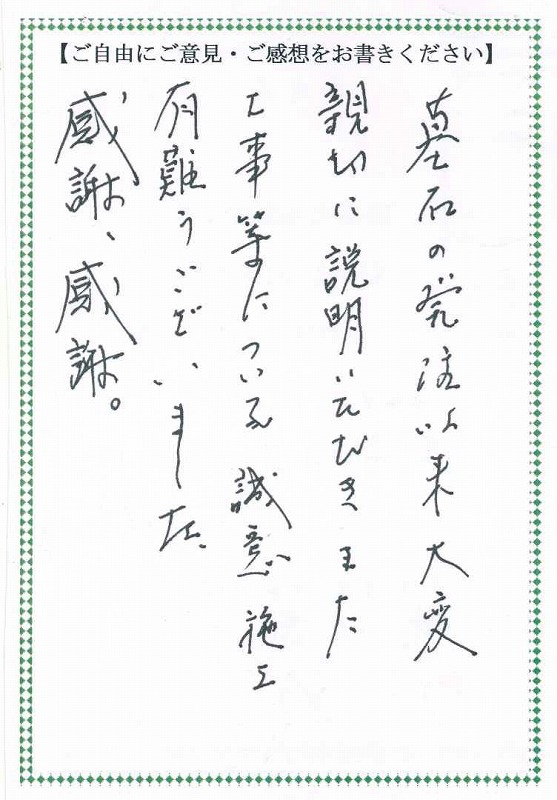 【ご自由にご意見・ご感想をお書きください】
墓石の発注以来大変
親切に説明いただきまた
工事等についても誠意施工
有難うございました。
感謝、感謝。